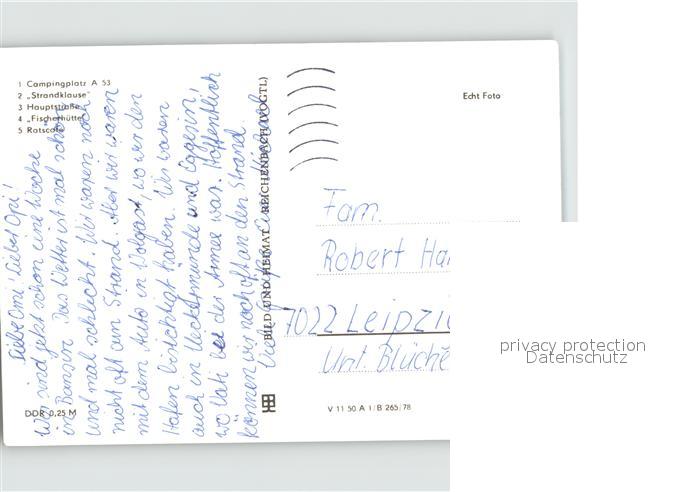 1 Campingplatz A 53
2 „Strandklause"
3 Hauptstraße
4 „Fischerhütte"
5 Ratscafé
Echt Foto
Liebe Omi! Lieber Opi!
Wir sind jetzt schon eine Woche
in Bansin. Das Wetter ist mal schön
und mal schlecht. Wir waren noch
nicht oft am Strand. Aber wir waren
mit dem Auto in Wolgast, wo wir den
Hafen besichtigt haben. Wir waren
auch in Ueckermünde und Eggesin,
wo Vati bei der Armee war. Hoffentlich
können wir noch oft an den Strand.
Viele
BILD UND HEIMAT REICHENBACH (VOGTL)
Fam.
Robert Ha
7022 Leipzi
Unt. Blüche
privacy protection
Datenschutz
DDR 0,25 M
V 11 50 A 1/B 265/78